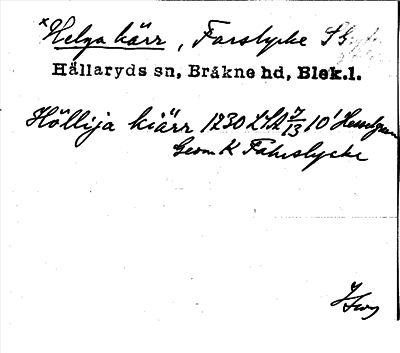 *Helga kärr, Farslycke
Hällaryds sn, Bräkne hd, Blek.l.
Höllija kiärr 1230 LSA 7/13 10' Hesselgren
Geom K Fahrslycke